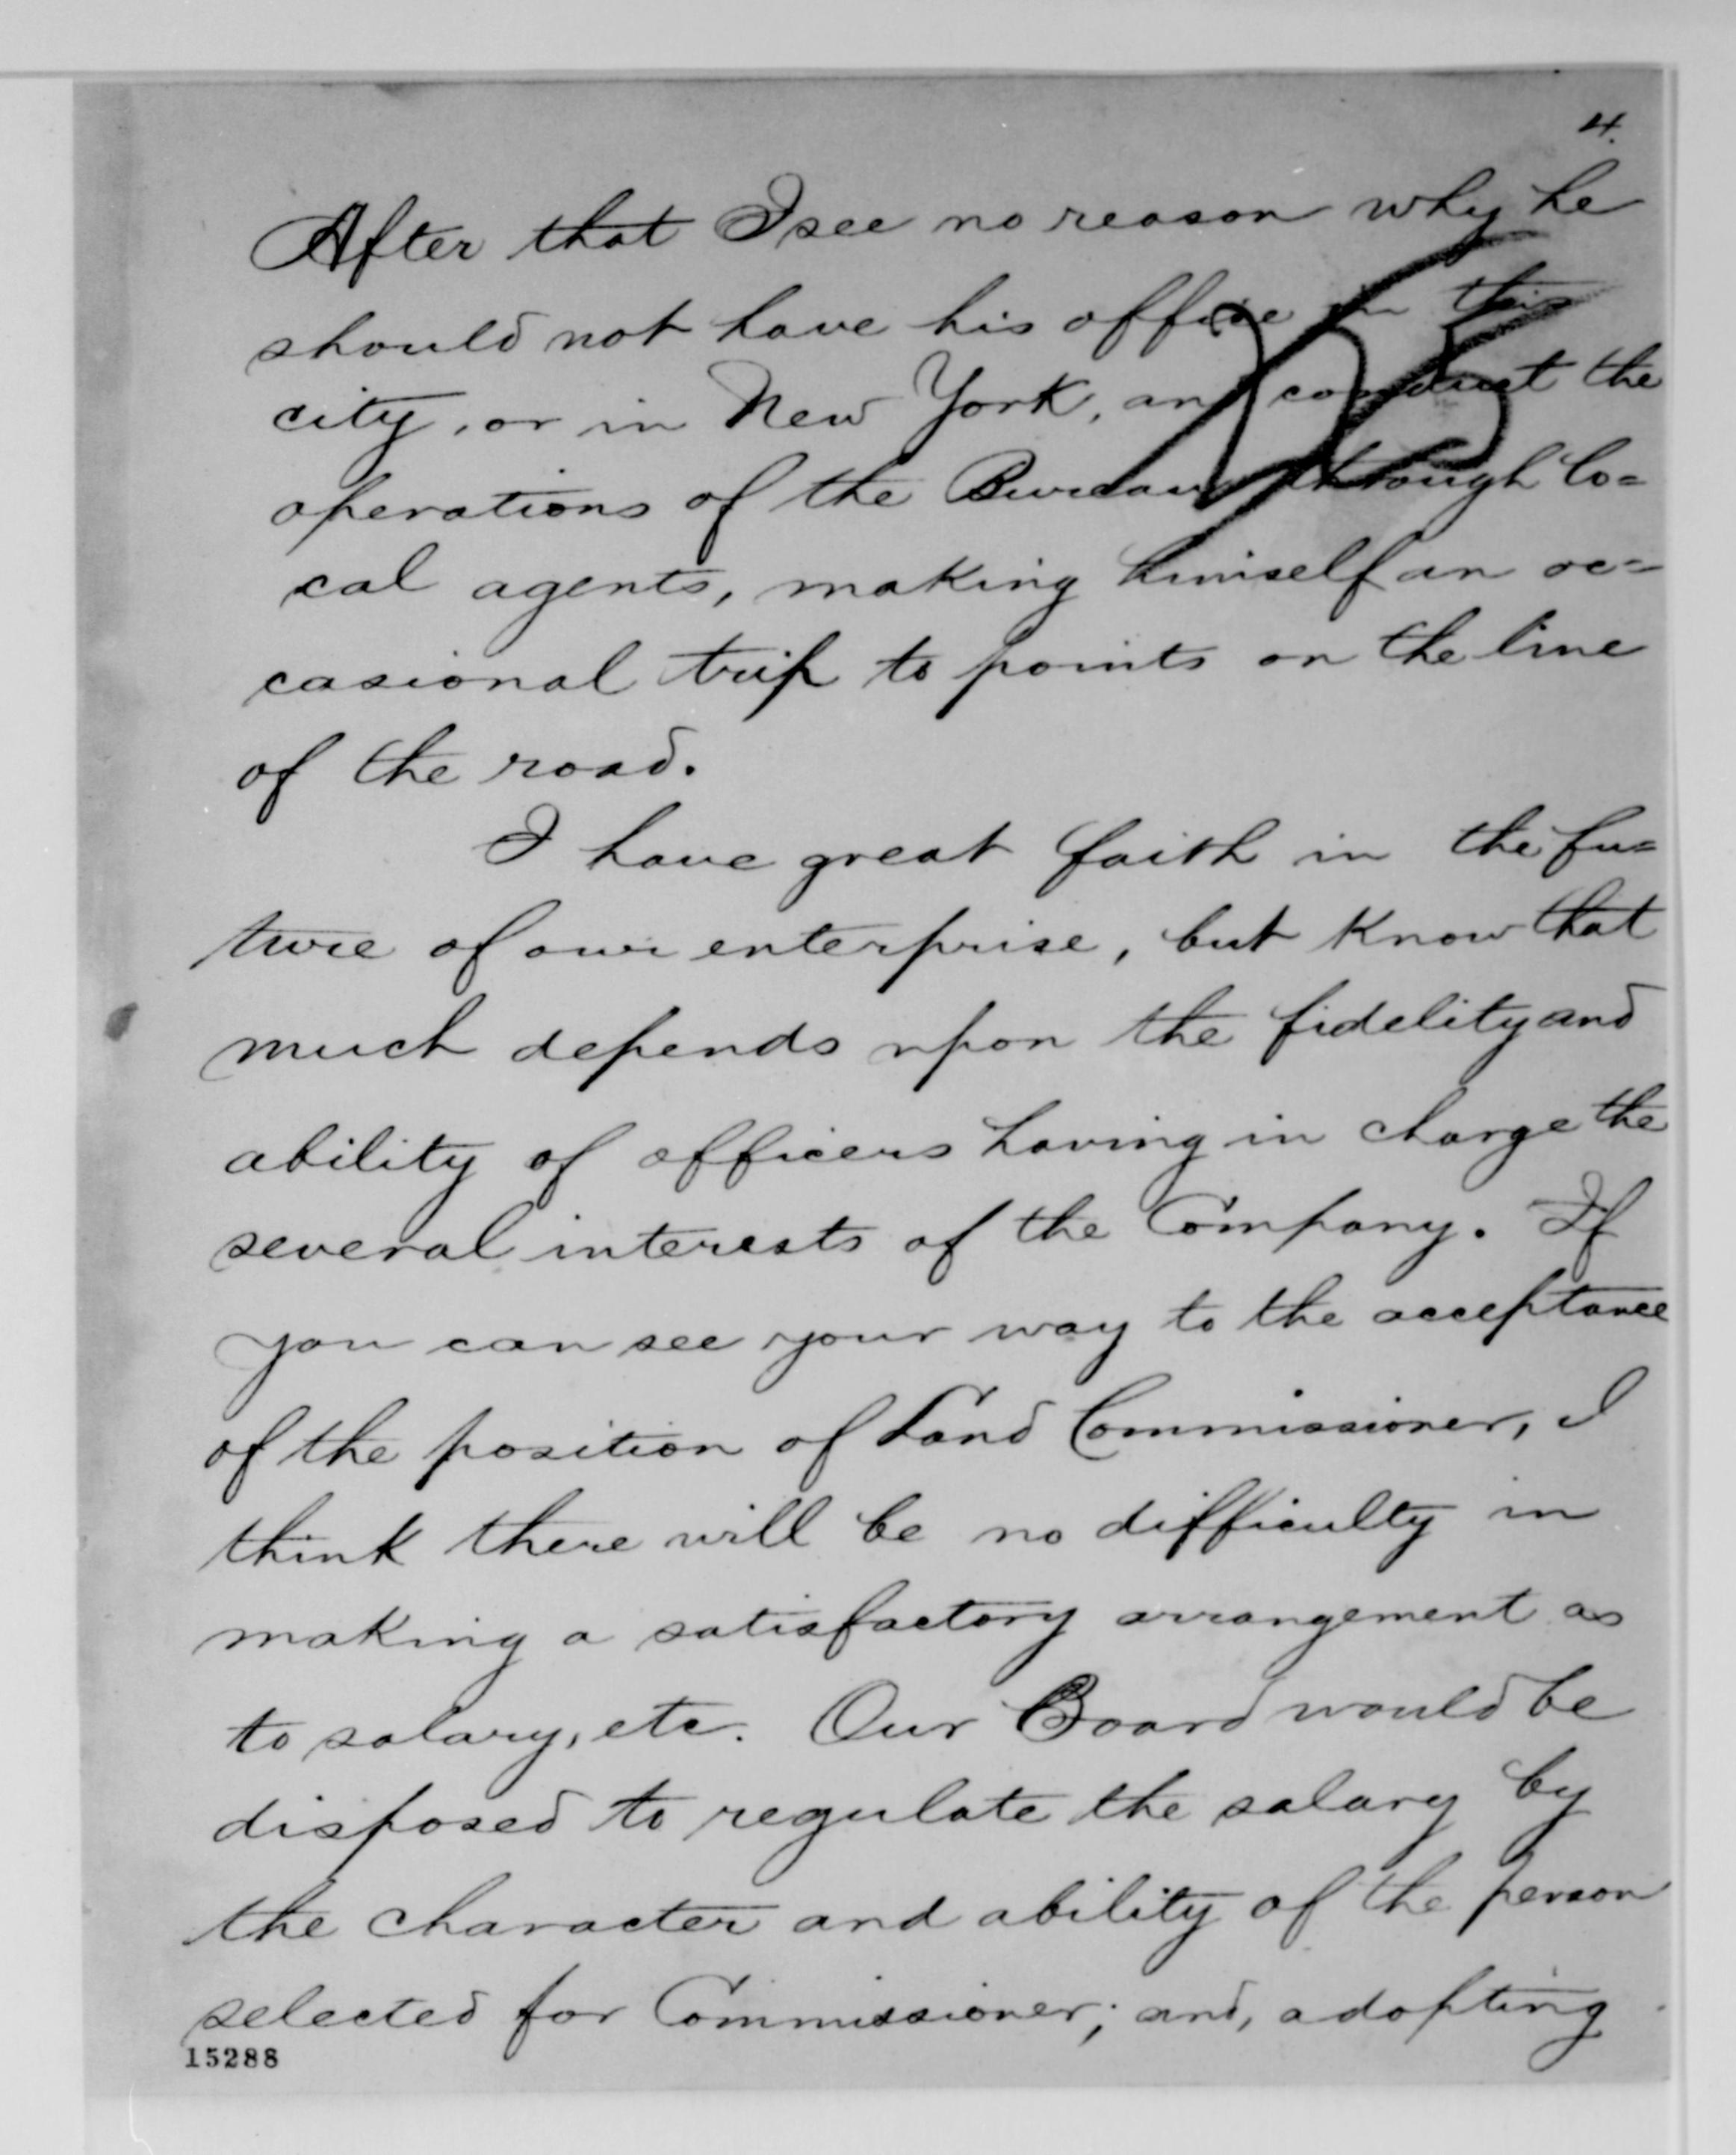 4.
After that I see no reason why he
should not have his office in this
city, or in New York, and conduct the
operations of the Bureau through lo=
cal agents, making himself an oc=
casional trip to points on the line
of the road.
I have great faith in the fu=
ture of our enterprise, but know that
much depends upon the fidelity and
ability of officers having in charge the
several interests of the Company. If
you can see your way to the acceptance
of the position of Land Commissioner, I
think there will be no difficulty in
making a satisfactory arrangement as
to salary, etc. Our Board would be
disposed to regulate the salary by
the character and ability of the person
selected for Commissioner; and, adopting
15288